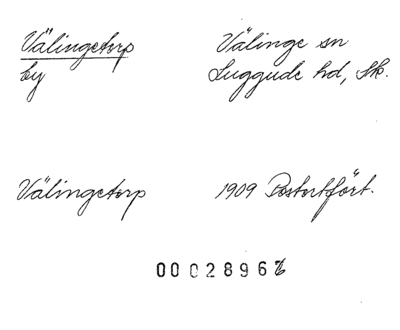 Välingetorp
by
Välinge sn
Luggude hd, Sk.
Välingetorp
1909 Postortfört.